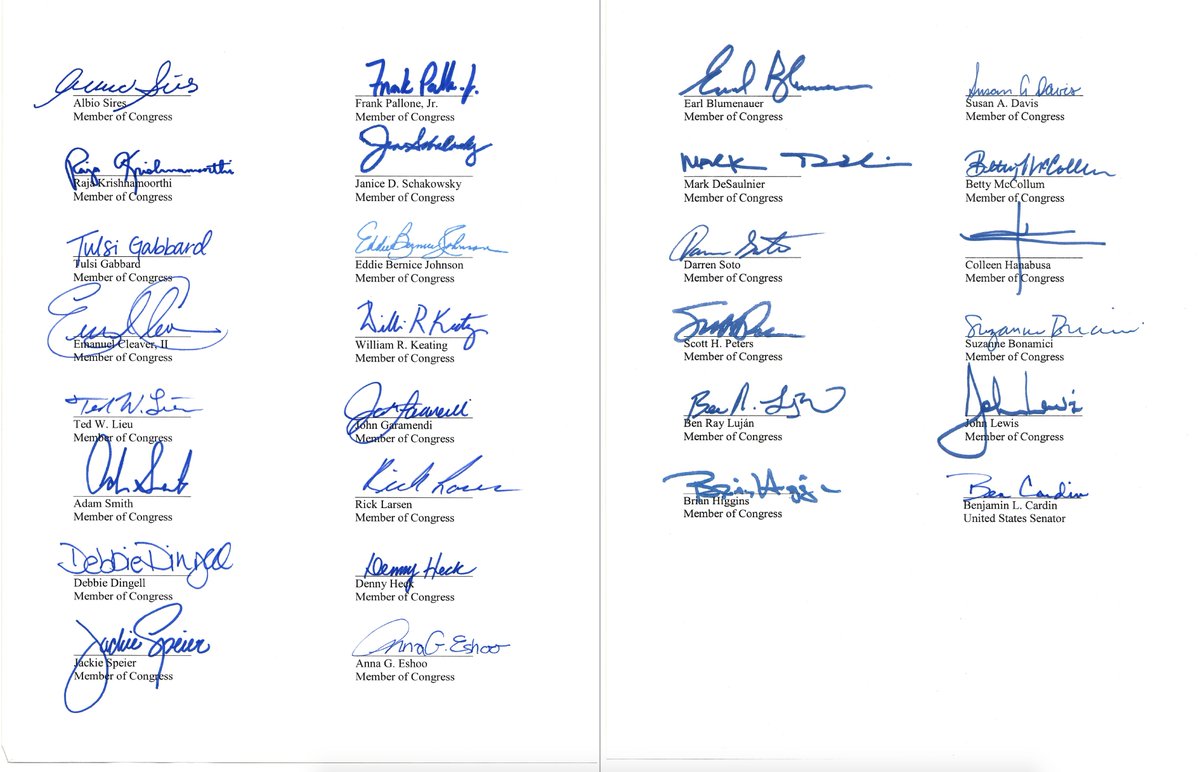 Albio Sires
Member of Congress
Frank Pallone, Jr.
Member of Congress
Raja Krishnamoorthi
Raja Krishnamoorthi
Member of Congress
Janice D. Schakowsky
Member of Congress
Tulsi Gabbard
Tulsi Gabbard
Member of Congress
Eddie Bernice Johnson
Eddie Bernice Johnson
Member of Congress
Emanuel Cleaver, II
Member of Congress
William R. Keating
Member of Congress
Ted W. Lieu
Ted W. Lieu
Member of Congress
John Garamendi
Member of Congress
Adam Smith
Member of Congress
Rick Larsen
Rick Larsen
Member of Congress
Debbie Dingell
Debbie Dingell
Member of Congress
Denny Heck
Denny Heck
Member of Congress
Jackie Speier
Jackie Speier
Member of Congress
Anna G. Eshoo
Anna G. Eshoo
Member of Congress
Earl Blumenauer
Member of Congress
Susan A Davis
Susan A. Davis
Member of Congress
Mark
Mark DeSaulnier
Member of Congress
Betty McCollum
Betty McCollum
Member of Congress
Darren Soto
Member of Congress
Colleen Hanabusa
Member of Congress
Scott H. Peters
Member of Congress
Suzanne Bonamici
Member of Congress
Ben R. Luján
Ben Ray Luján
Member of Congress
John Lewis
John Lewis
Member of Congress
Brian Higgins
Brian Higgins
Member of Congress
Ben Cardin
Benjamin L. Cardin
United States Senator